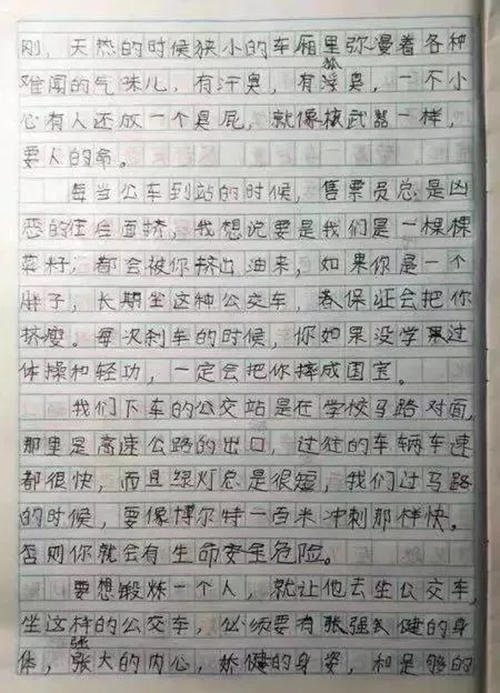 刚，天热的时候狭小的车厢里弥漫着各种
难闻的气味儿，有汗臭，有狐臭，一不小
心有人还放一个臭屁，就像核武器一样，
要人的命。
每当公车到站的时候，售票员总是凶
恶的往后面挤，我想说要是我们是一棵棵
菜籽，都会被你挤出油来，如果你是一个
胖子，长期坐这种公交车，卷保证会把你
挤瘦。每次刹车的时候，你如果没学过
体操和轻功，一定会把你摔成国宝。
我们下车的公交站是在学校马路对面，
那里是高速公路的出口，过往的车辆车速
都很快，而且绿灯总是很短，我们过马路
的时候，要像博尔特一百米冲刺那样快。
否则你就会有生命安全危险。
要想锻炼一个人，就让他去坐公交车，
坐这样的公交车，必须要有强健的身
体，强大的内心，矫健的身姿，和足够的